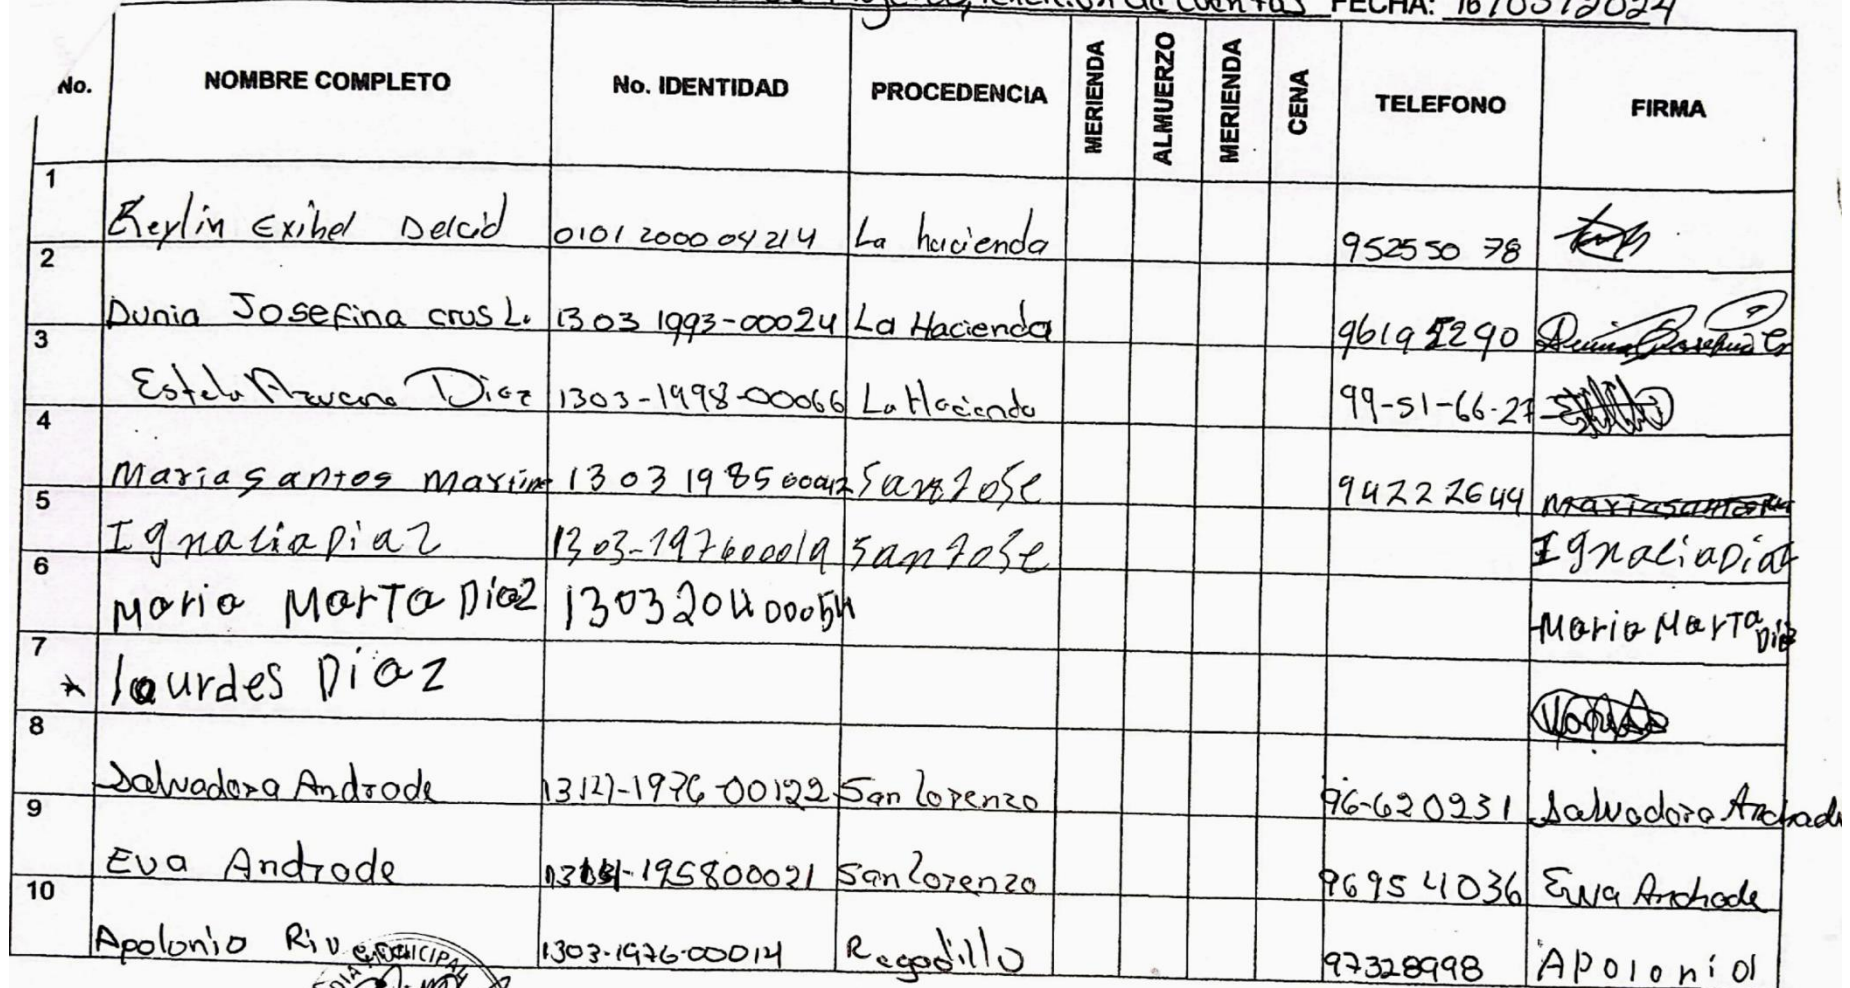 Proyecto, rendición de cuentas FECHA: 16/05/2024
No. NOMBRE COMPLETO No. IDENTIDAD PROCEDENCIA MERIENDA ALMUERZO MERIENDA CENA TELEFONO FIRMA
1 Keylin Exibel Delcid 0101 2000 04214 La hacienda 952550 78
2 Dunia Josefina crus L. 1303 1993-00024 La Hacienda 96195290 Dunia Josefina C
3 Estela Azucena Diaz 1303-1998-00066 La Hacienda 99-51-66-27
4 Maria Santos Martine 1303 1985 00042 San Jose 94222644 maria santos
5 Ignacia Diaz 1303-1976 00019 San Jose Ignacia Diaz
6 Maria Marta Diaz 1303 2011 00054 Maria Marta Diaz
7 * lourdes Diaz
8 Salvadora Andrade -1976-00122 San lorenzo 96-620231 Salvadora Andrade
9 Eva Andrade -195800021 San lorenzo 96954036 Eva Andrade
10 Apolonio 1303-1976-00014 Regadillo 97328998 APolonio